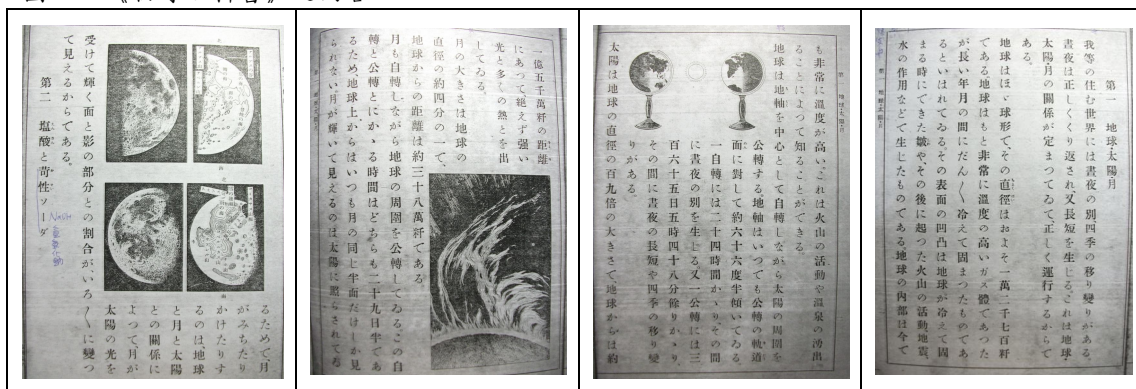 第一 地球・太陽・月
我等の住む世界には晝夜の別、四季の移り變りがある。
晝夜は正しくくり返され、又長短を生じる。これは地球・
太陽・月の關係が定まつてゐて、正しく運行するからで
ある。
地球はほゞ球形で、その直徑はおよそ一萬二千七百粁
である。地球はもと非常に溫度の高いガス體であつた
が、長い年月の間にだん〳〵冷えて固まつたものであ
るといはれてゐる。その表面の凹凸は地球が冷えて固
まる時にできた皺や、その後に起つた火山の活動・地震、
水の作用などで生じたものである。地球の内部は今で
第一 地球・太陽・月
も非常に溫度が高い。これは火山の活動や溫泉の湧出
ることによつて知ることができる。
地球は地軸を中心として自轉しながら太陽の周圍を
公轉する。地軸はいつでも公轉の軌道
面に對して約六十六度半傾いてゐる。
一自轉には二十四時間かゝり、その間
に晝夜の別を生じる。又一公轉には三
百六十五日五時四十八分餘りかゝり、
その間に晝夜の長短や四季の移り變
りがある。
太陽は地球の直徑の百九倍の大きさで、地球からは約
一億五千萬粁の距離
にあつて、絶えず强い
光と多くの熱とを出
してゐる。
月の大きさは地球の
直徑の約四分の一で、
地球からの距離は約三十八萬粁である。
月も自轉しながら地球の周圍を公轉してゐる。この自
轉と公轉とにかゝる時間はどちらも二十九日半であ
るため、地球上からはいつも月の同じ半面だけしか見
られない。月が輝いて見えるのは太陽に照らされてゐ
るためで、月
がみちたり
かけたりす
るのは地球
と月と太陽
との關係に
よつて、月が
太陽の光を
受けて輝く面と影の部分との割合がいろ〳〵に變つ
て見えるからである。
第二 鹽酸と苛性ソーダ